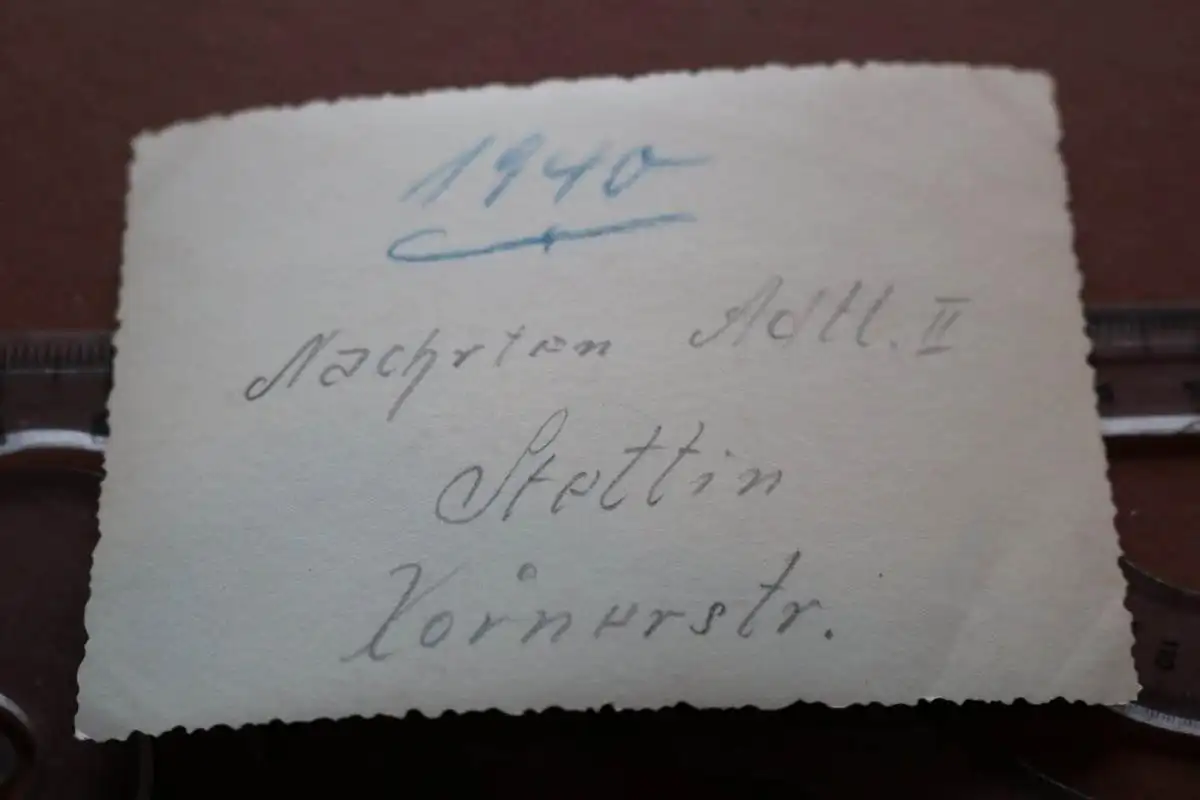 1940
Nachrten Adtl. II
Stettin
Körnerstr.